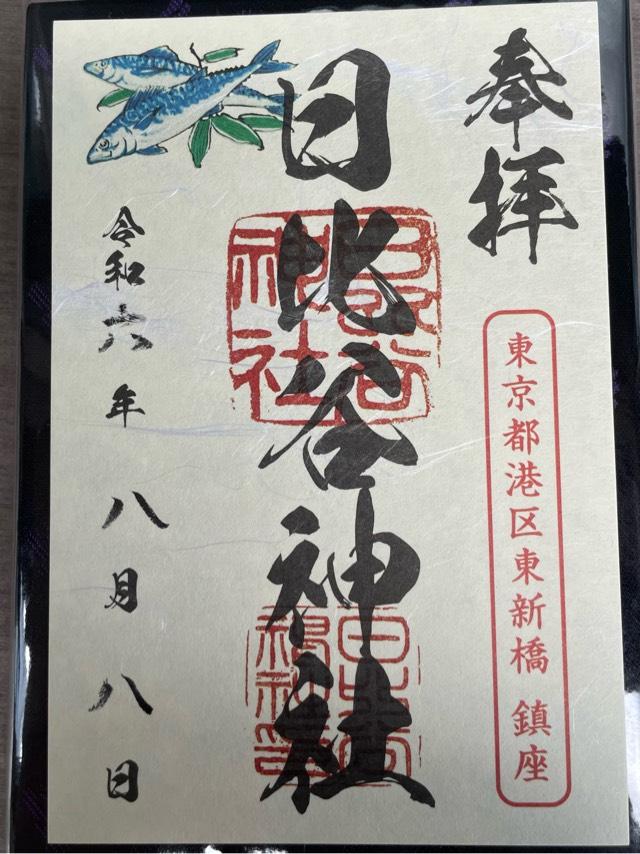 奉拝
東京都港区東新橋 鎮座
日比谷神社
日比谷神社
令和六年 八月 八日